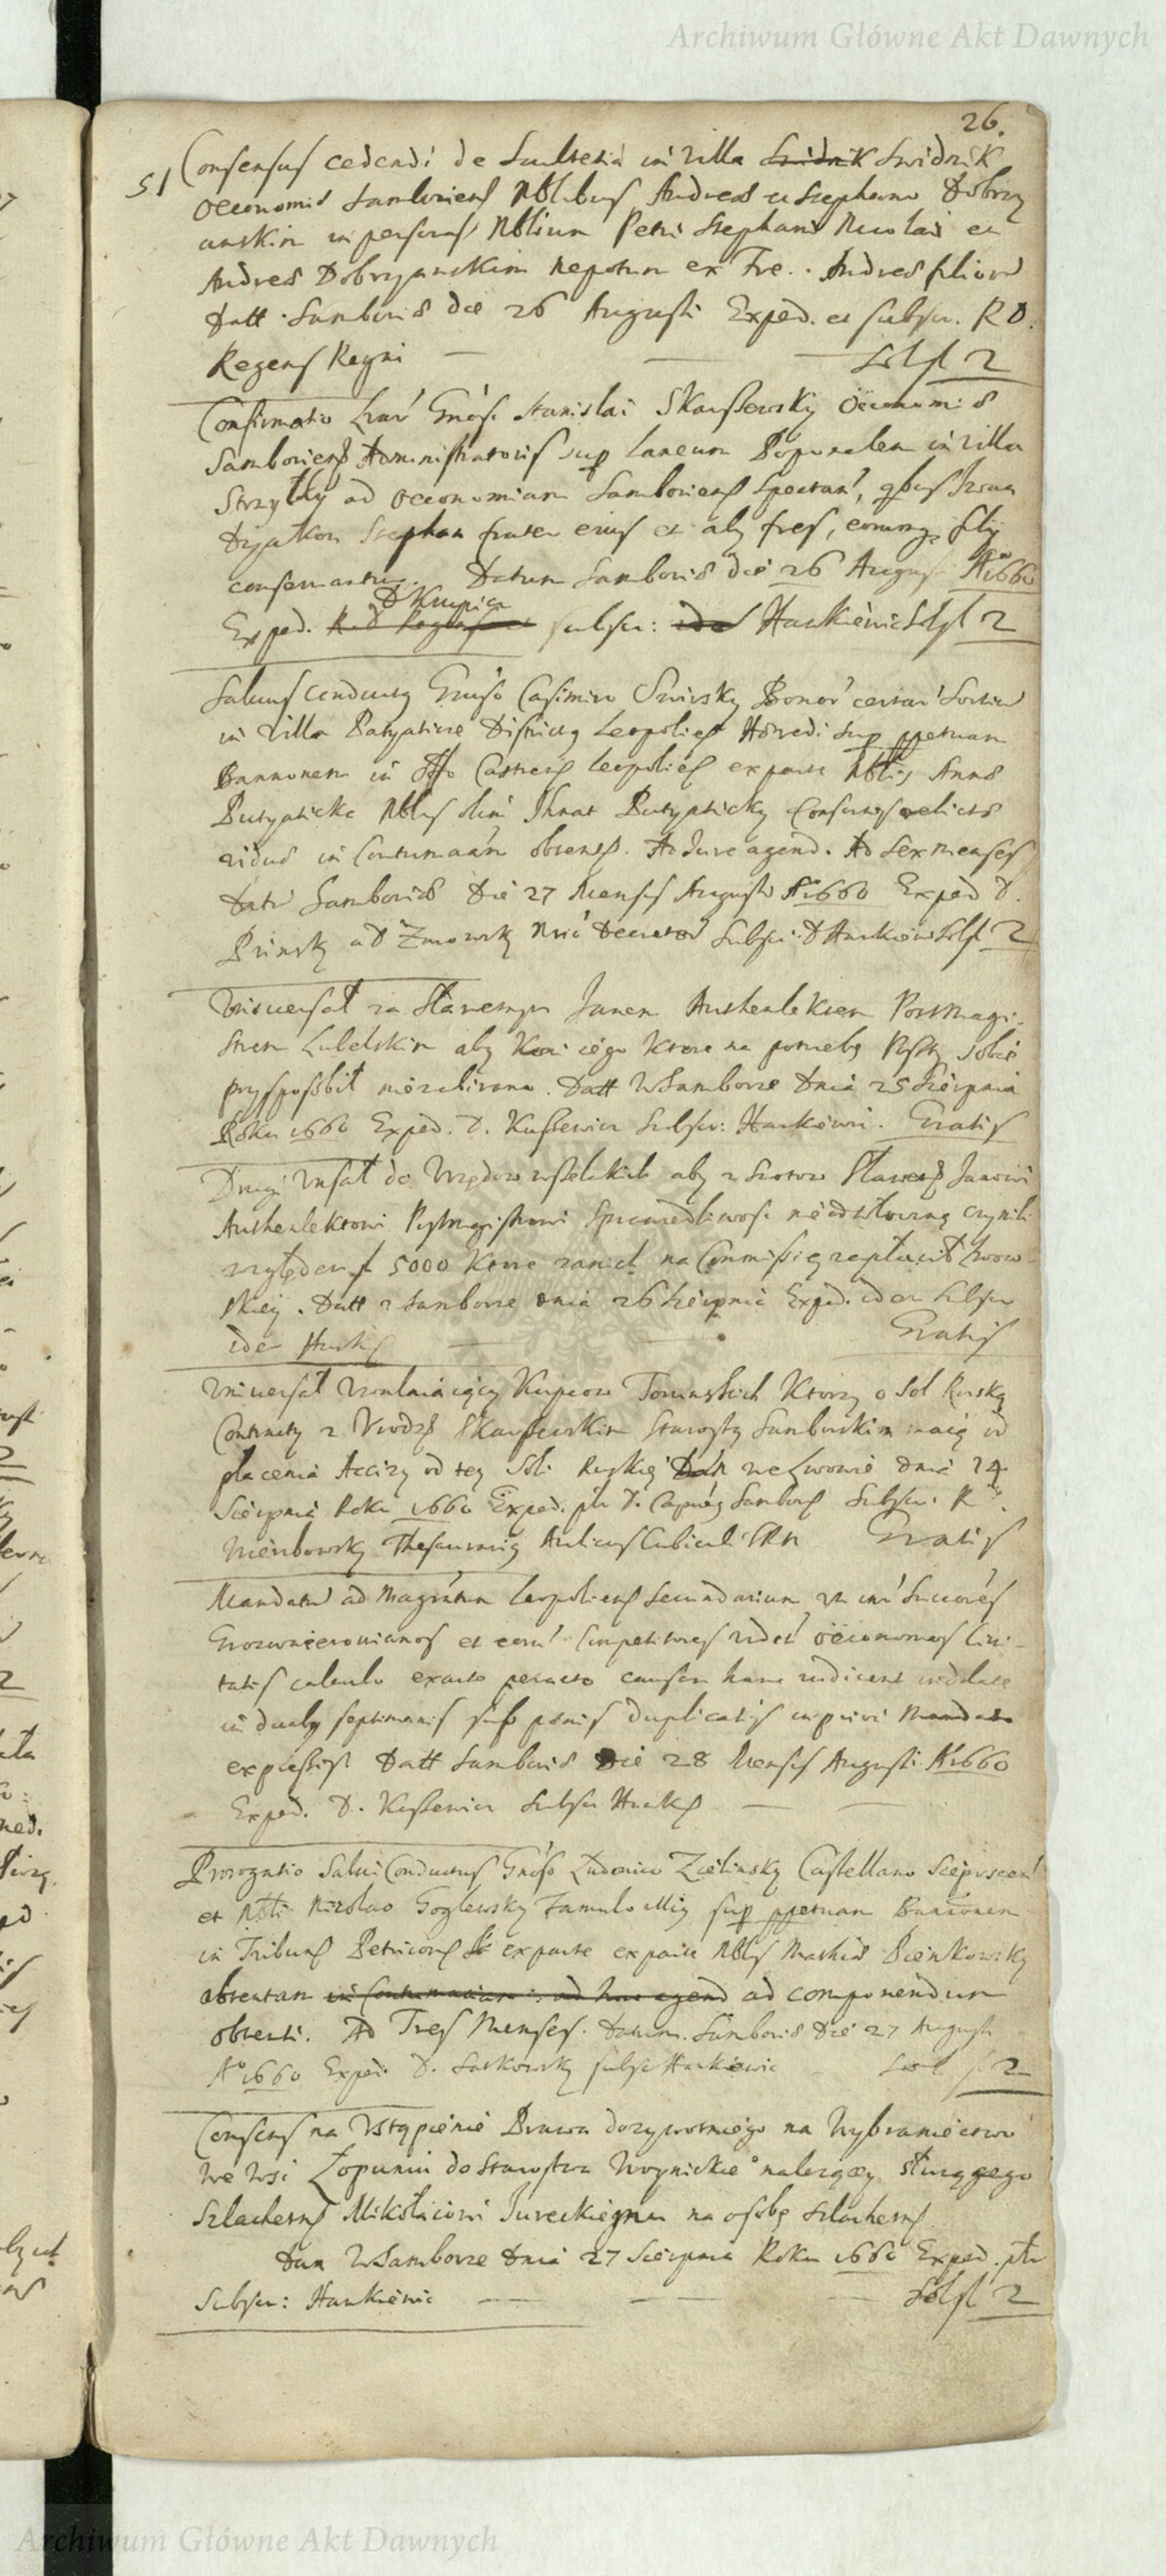 Archiwum Główne Akt Dawnych
26.
51 Consensus cedendi de Scultetia in villa Swidnik Swidnik
Oeconomiae Samboriens Nblibus Andreae et Stephano Dobrzy
anskim in personas Nblium Petri Stephani Nicolai et
Andreae Dobrzanskim Nepotum ex Fre. Andrea filiorum
Datt. Samboriae die 26 Augusti Exped. et subscr. R D.
Regens Regni — — — Sol fl 2
Confirmatio Gnosi Stanislai Skarszewsky Oeconomiae
Samboriens Administratoris sup Laneum Poponalem in villa
Strzylky ad Oeconomiam Samboriens spectan,
Dyakon Stephan frater eius et aly fres, filij
conservantur. Datum Samboriae die 26 August A 1660
D Krupica
Exped. subscr: Hankiewic Sol fl 2
Salvus Conductus Gnoso Casimiro Swirsky Bonor certar Sortium
in villa Putyatince Districtus Leopolien Haeredi sup ppetuam
Bannonem in Offo Castren Leopolien ex parte Nblis Annae
Putyaticka Nblis olim Ihnat Putyaticky Consortis relictae
viduae in Contumaciam obtent. Ad Iure agend. Ad Sex menses
Dat Samboriae Die 27 Mensis Augusti A 1660 Exped D.
Prinsky Subscr: D Hankiewic Sol fl 2
Uniwersał za Sławetnym Janem Postmagi-
strem Lubelskim aby Koni iego ktore na potrzebę Poszty sobie
przysposobił nie zabirano. Datt w Samborze Dnia 25 Sierpnia
Roku 1660 Exped. D. Kuszewicz Subscr: Hankiewic. Gratis
Drugi Vnsał do Vrzędow wszelakich aby z Sławet Janowi
Postmagistrowi sprawiedliwosc nieodwłoczną czynili
względem fl 5000 ktore zanich na Commissię zapłacił Lwow-
skiey. Datt z Samborze dnia 26 Sierpnia Exped. idem Subscr
idem Hank — — Gratis
Vniversał Vwalniaiący Kupcow Torunskich Ktorzy o Sol Ruską
Contracty z Vrodz Skarszewskim Starostą Samborskim maią od
płacenia Accizy od tey Soli Ruskiey Dan we Lwowie dnia 24
Sierpnia Roku 1660 Exped. Sambor Subscr. R
Wierzbowsky Thesaurarius Aulicus Cubiculi SRM Gratis
Mandatum ad Magratum Leopolien Secundarium
et eorum Competitores oeconomos Civi-
tatis calculo exacto peracto causam hanc iudicent indilate
in duabus septimanis sub poenis duplicatis in priori Mandato
expressis Datt Samboriae Die 28 Mensis Augusti A 1660
Exped. D. Kuszewicz Subscr Hank — —
Prorogatio Salvi Conductus Gnoso Ludovico Zielinsky Castellano Sieprscen
et Nbli Nicolao Goglewsky Famulo illius sup ppetuam Bannonem
in Tribunal Petricovien ex parte ex parte Nblis Mathiae Pienkowsky
obtentam in Contumaciam: ad Iure agend ad componendum
obtenti. Ad Tres Menses. Datum. Samboriae Die 27 Augusti
A 1660 Exped. D. Saskowsky Subscr Hankiewic Sol fl 2
Consens na Vstąpienie Prawa dozywotniego na Wybraniectwo
we wsi Łopuniu do Starostwa Woynickie nalezącey słuzącego
Szlachetn Mikołaiowi Iureckiemu na osobę Szlachetn
Dan w Samborze Dnia 27 Sierpnia Roku 1660 Exped.
Subscr: Hankiewic — — — Sol fl 2
Archiwum Główne Akt Dawnych